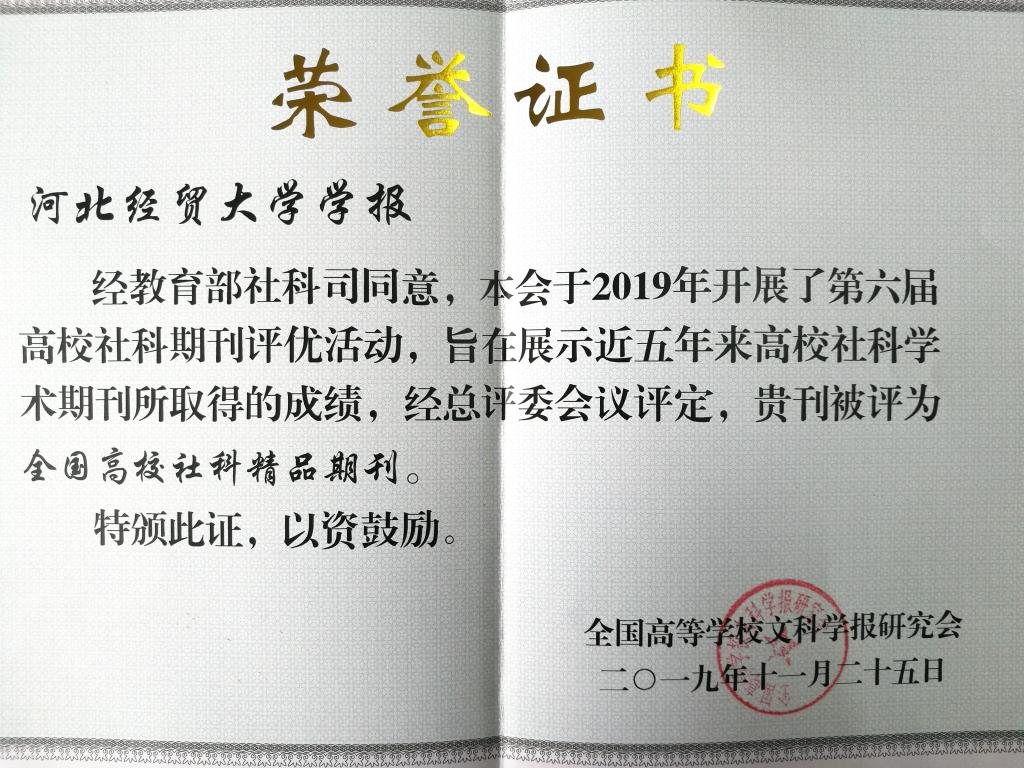 荣誉证书
河北经贸大学学报
经教育部社科司同意，本会于2019年开展了第六届
高校社科期刊评优活动，旨在展示近五年来高校社科学
术期刊所取得的成绩，经总评委会议评定，贵刊被评为
全国高校社科精品期刊。
特颁此证，以资鼓励。
全国高等学校文科学报研究会
二〇一九年十一月二十五日